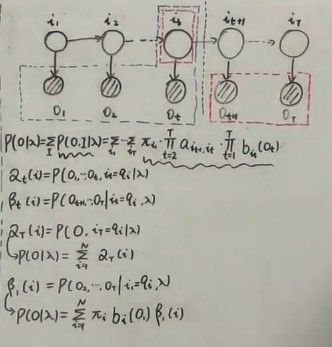 i₁ i₂ iₜ iₜ₊₁ i_T
o₁ o₂ oₜ oₜ₊₁ o_T
P(O|λ)=∑_I P(O,I|λ)=∑_{i₁}…∑_{i_T} π_{i₁} · ∏_{t=2}^{T} a_{iₜ₋₁,iₜ} · ∏_{t=1}^{T} b_{iₜ}(oₜ)
αₜ(i)=P(o₁,…oₜ,iₜ=qᵢ|λ)
βₜ(i)=P(oₜ₊₁…o_T|iₜ=qᵢ,λ)
α_T(i)=P(O,i_T=qᵢ|λ)
↳P(O|λ)=∑_{i=1}^{N} α_T(i)
β₁(i)=P(o₂,…o_T|i₁=qᵢ,λ)
↳P(O|λ)=∑_{i=1}^{N} πᵢ bᵢ(o₁) β₁(i)